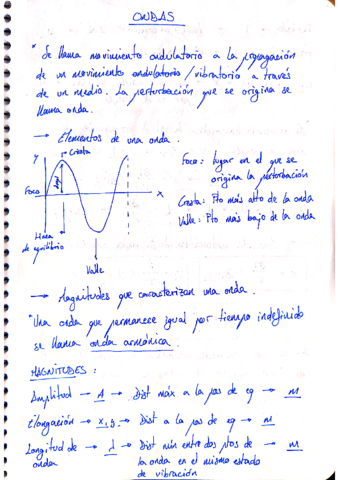 ONDAS
* Se llama movimiento ondulatorio a la propagación
de un movimiento ondulatorio / vibratorio a través
de un medio. La perturbación que se origina se
llama onda.
→ Elementos de una onda.
y
Cresta
Foco
x
Línea
de equilibrio
Valle
Foco: lugar en el que se
origina la perturbación
Cresta: Pto más alto de la onda
Valle: Pto más bajo de la onda
→ Magnitudes que caracterizan una onda.
* Una onda que permanece igual por tiempo indefinido
se llama onda armónica.
MAGNITUDES:
Amplitud → A → Dist máx a la pos de eq → m
Elongación → x, y → Dist a la pos de eq → m
Longitud de → λ → Dist mín entre dos ptos de → m
onda la onda en el mismo estado
de vibración